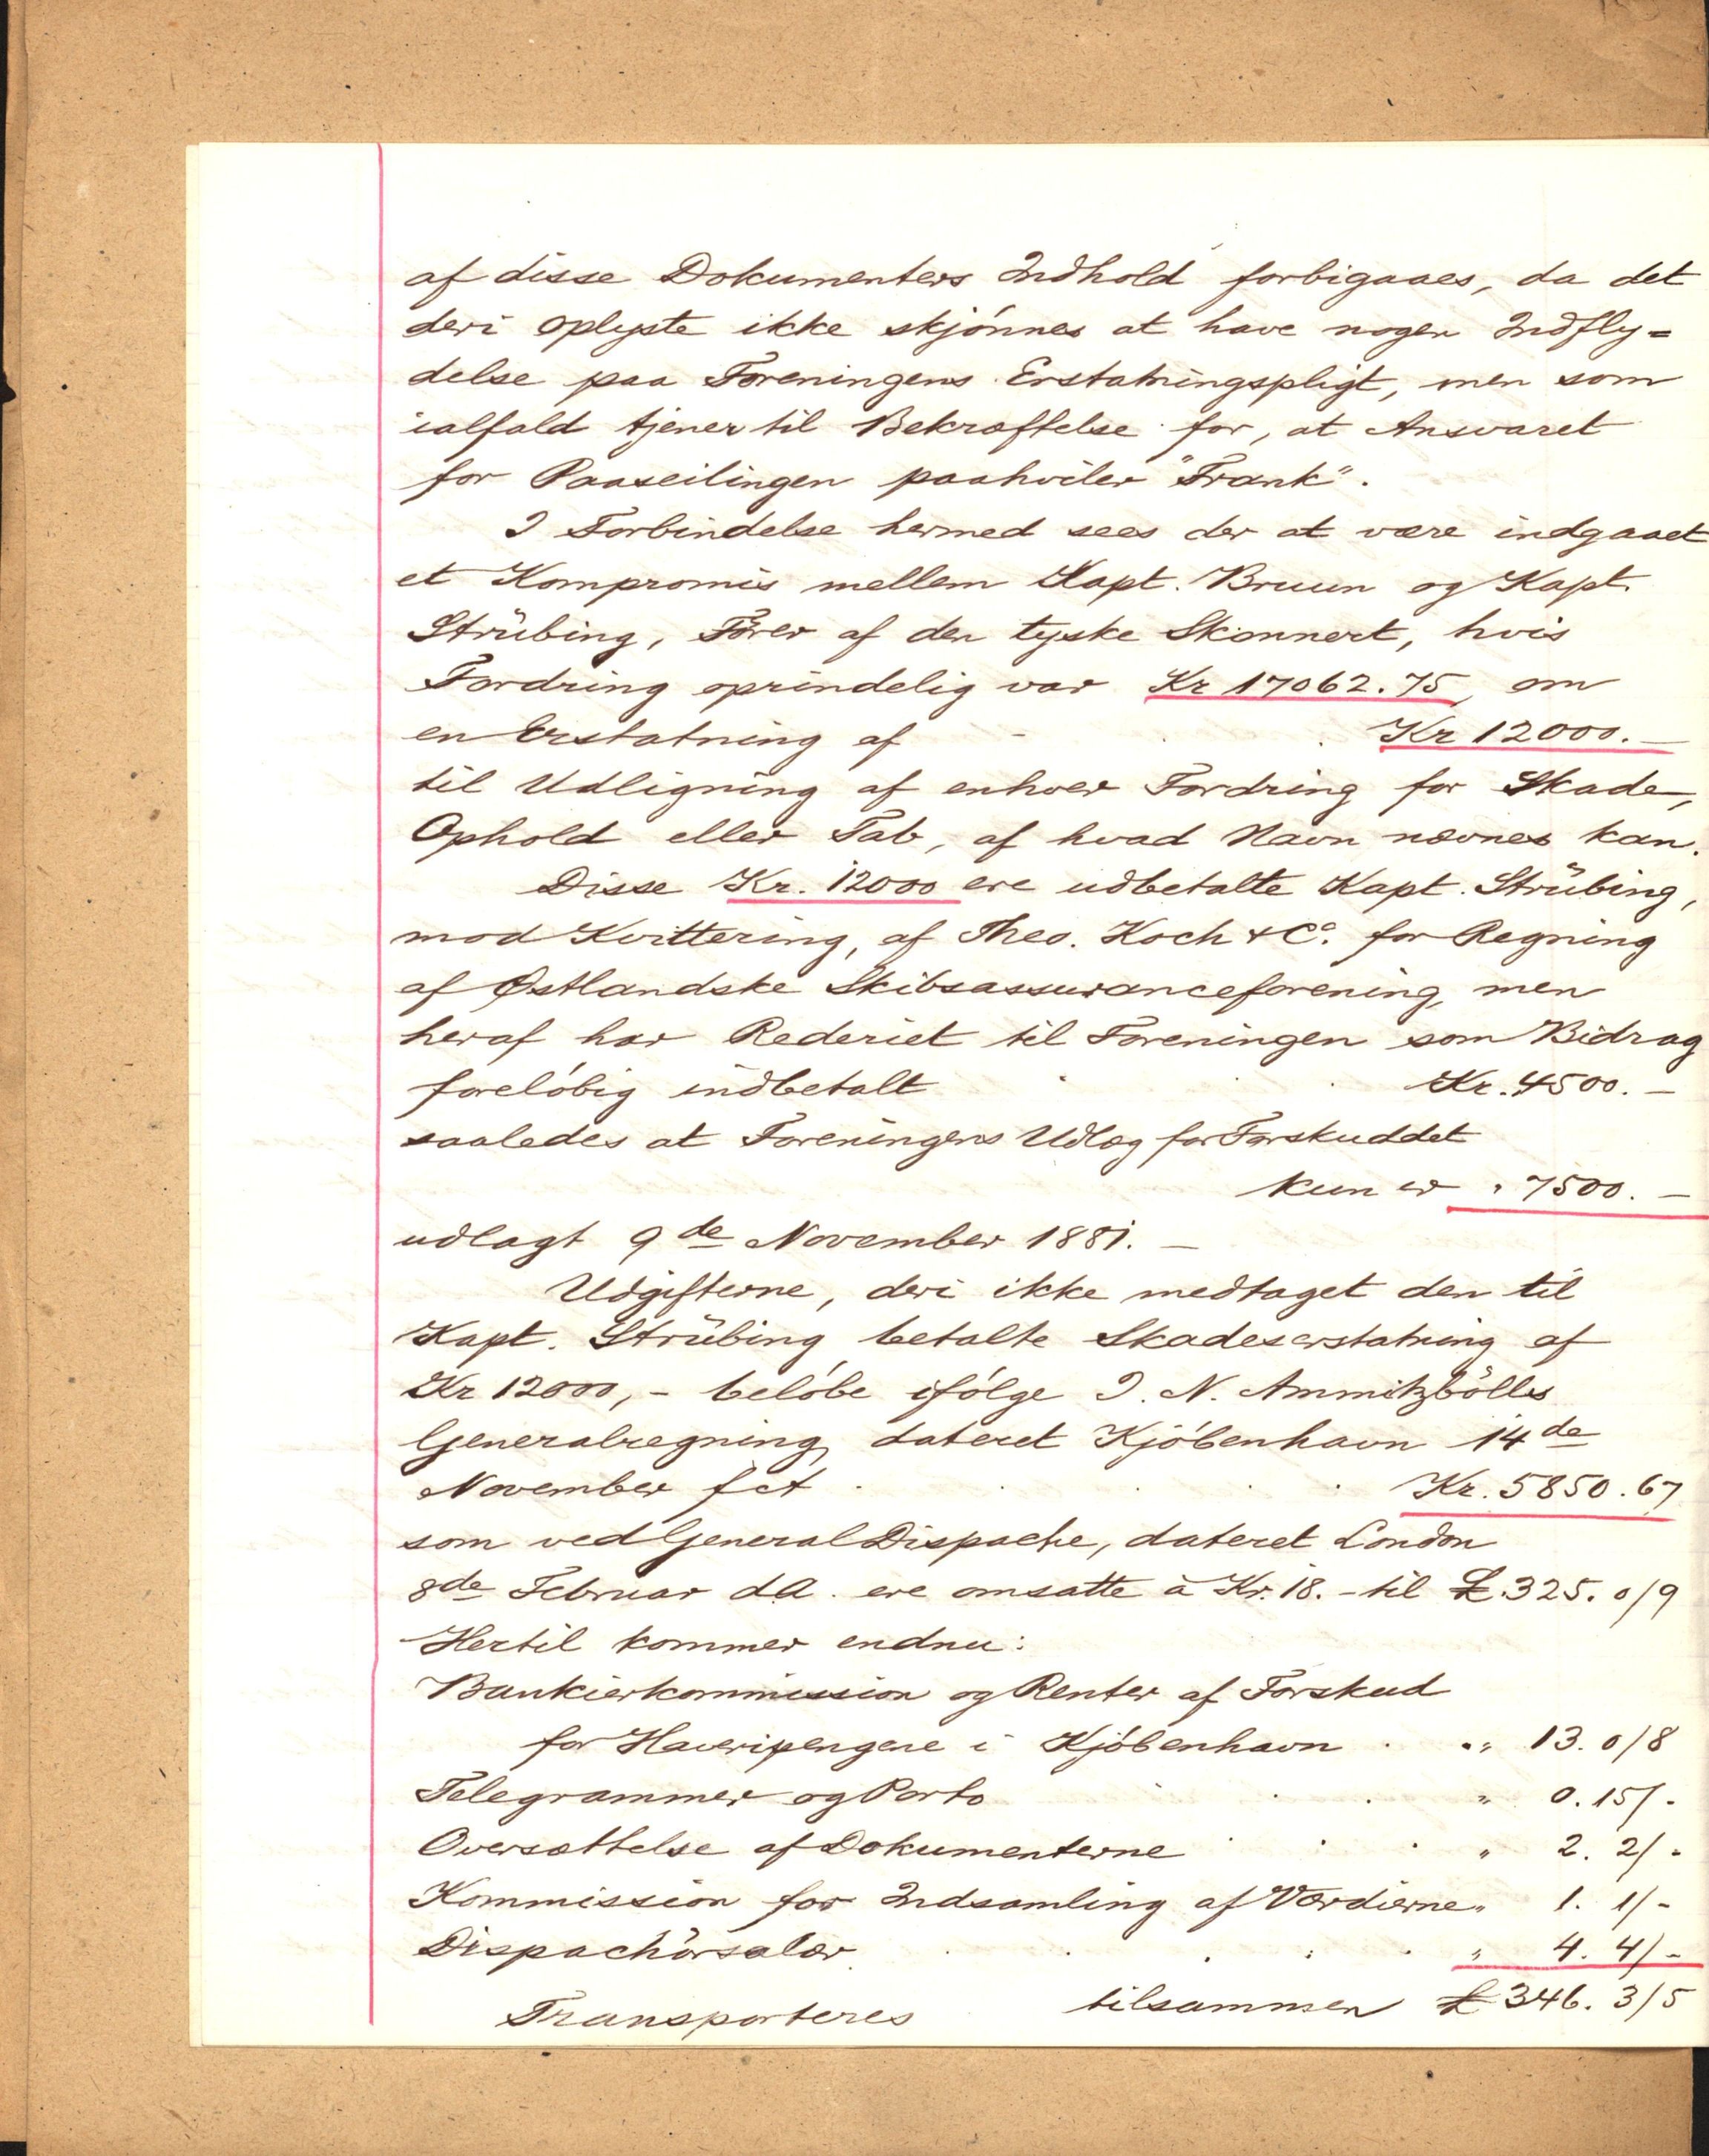 af disse Dokumenters Indhold forbigaaes, da det
deri oplyste ikke skjönnes at have nogen Indfly=
delse paa Foreningens Erstatningspligt, men som
ialfald tjener til Bekræftelse for, at Ansvaret
for Paaseilingen paahviler "Frank".
I Forbindelse hermed sees der at være indgaaet
et Kompromis mellem Kapt. Bruun og Kapt.
Strübing, Förer af den tyske Skonnert, hvis
Fordring oprindelig var Kr 17062.75, om
en Erstatning af - Kr 12000.-
til Udligning af enhver Fordring for Skade,
Ophold eller Tab, af hvad Navn nævnes kan.
Disse Kr. 12000 ere udbetalte Kapt. Strübing,
mod Kvittering, af Theo. Koch & Co. for Regning
af Østlandske Skibsassuranceforening, men
heraf har Rederiet til Foreningen som Bidrag
forelöbig indbetalt Kr. 4500.-
saaledes at Foreningens Udlæg for Forskuddet
kun er " 7500.-
udlagt 9de November 1881.-
Udgifterne, deri ikke medtaget den til
Kapt. Strübing betalte Skadeserstatning af
Kr 12000,- belöbe ifölge I. N. Ammitzbölls
Generalregning, dateret Kjöbenhavn 14de
November fct Kr. 5850.67
som ved General Dispache, dateret London
8de Februar d.A. ere omsatte à Kr. 18.- til £.325.0/9
Hertil kommer endnu:
Bankierkommission og Renter af Forskud
for Haveripengene i Kjöbenhavn " 13.0/8
Telegrammer og Porto " 0.15/-
Oversættelse af Dokumenterne " 2.2/-
Kommission for Indsamling af Værdierne " 1.1/-
Dispachörsalær " 4.4/-
Transporteres tilsammen £ 346.3/5